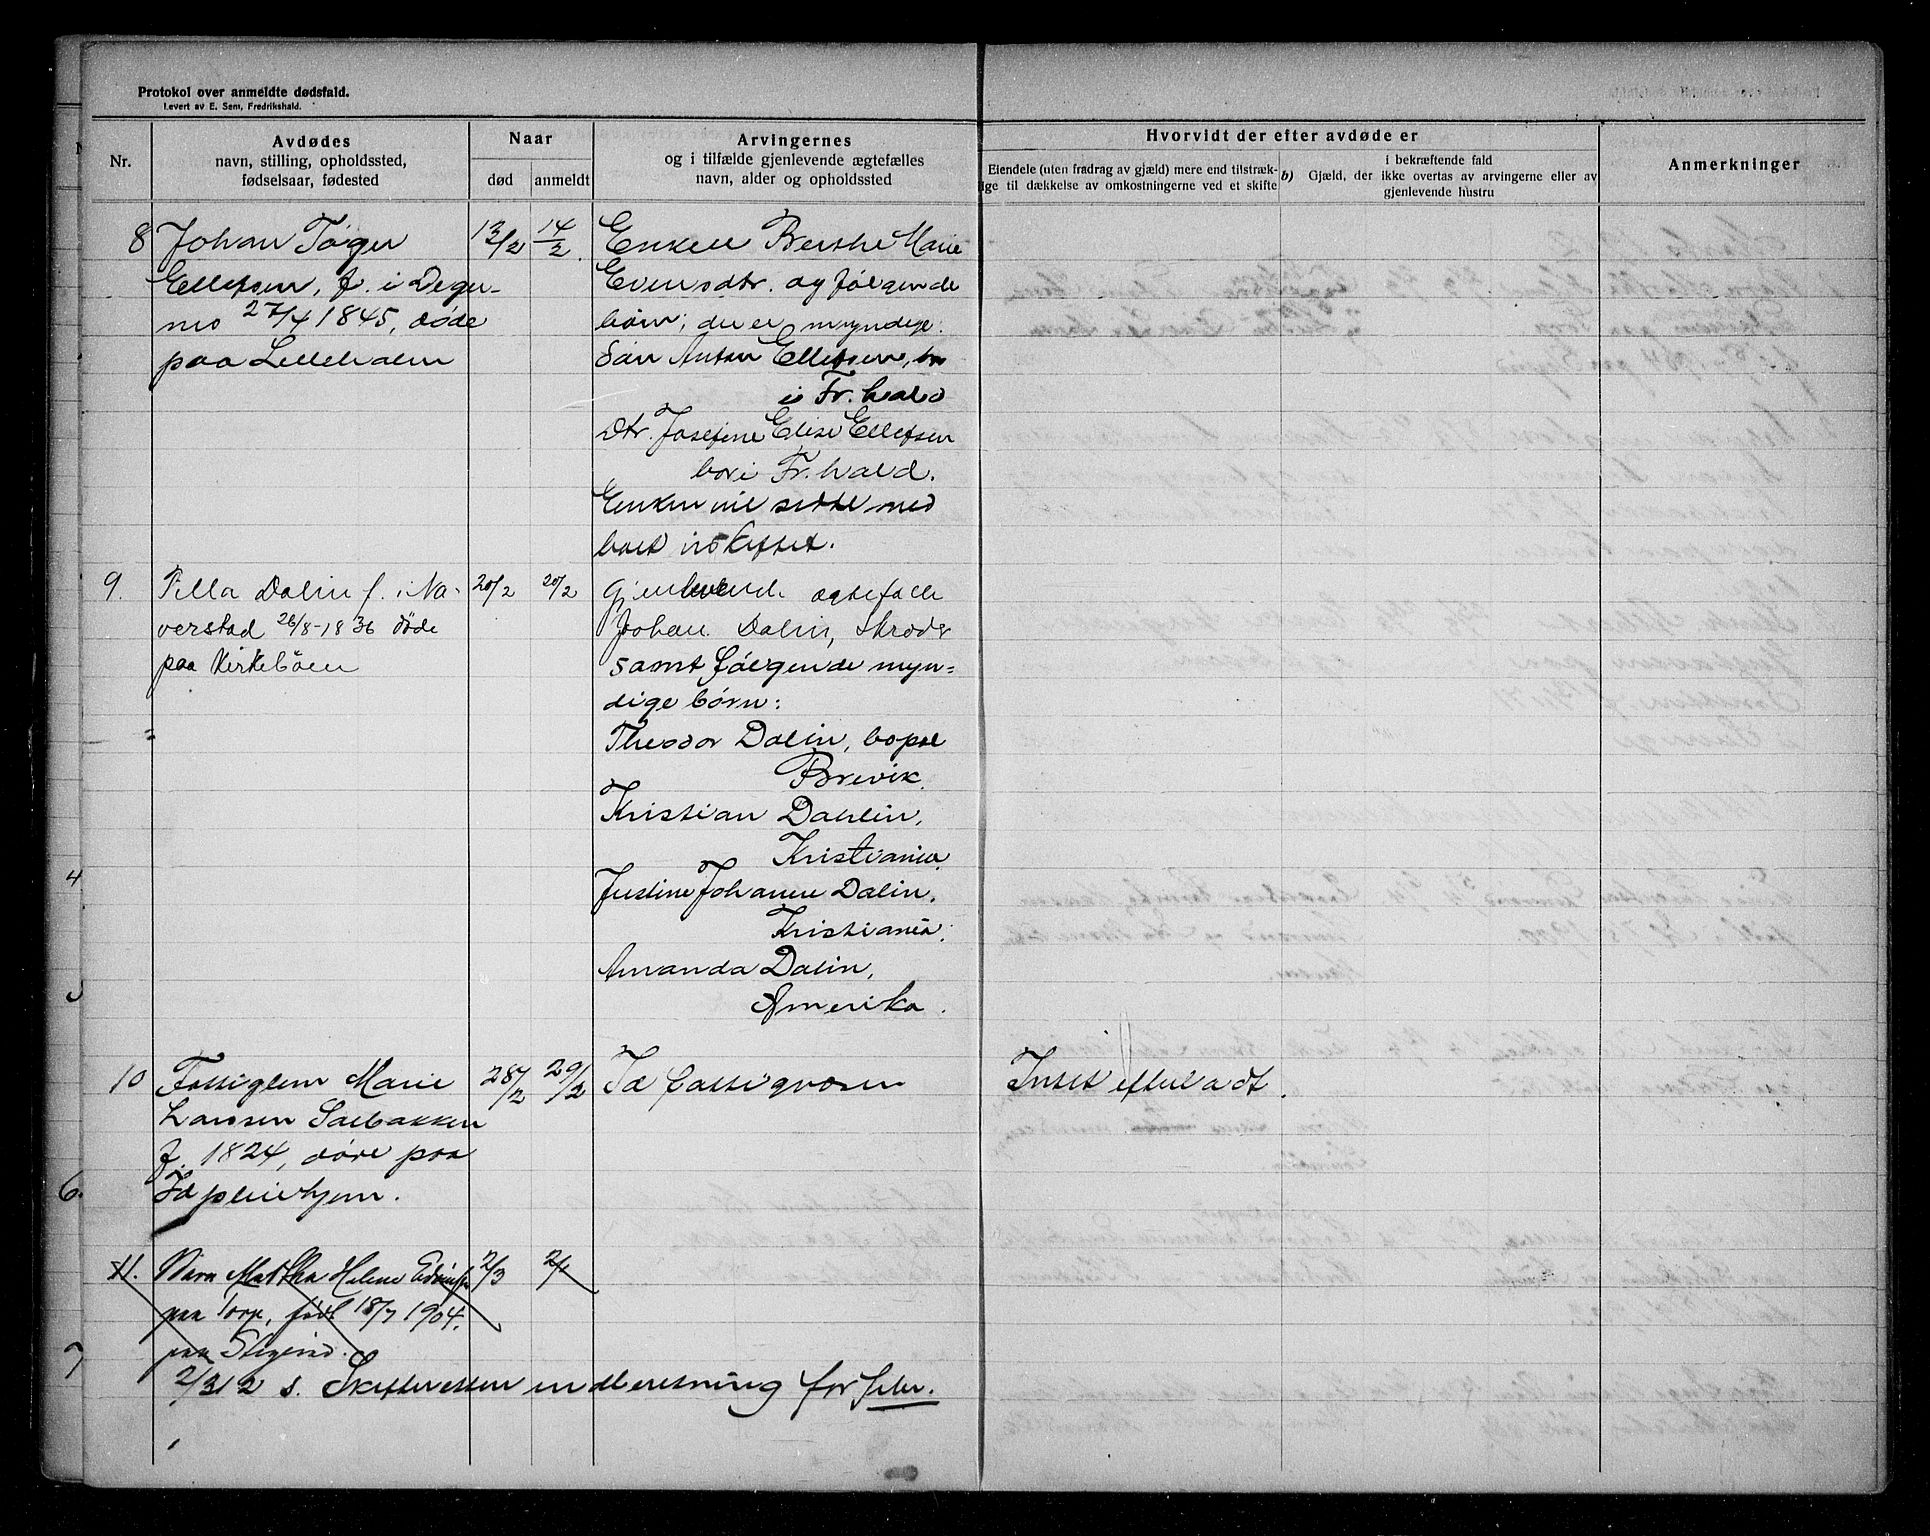 Protokol over anmeldte dødsfald.
Levert av E. Sem, Fredrikshald.
Nr.
Avdødes
navn, stilling, opholdssted,
fødselsaar, fødested
Naar
død
anmeldt
Arvingernes
og i tilfælde gjenlevende ægtefælles
navn, alder og opholdssted
Hvorvidt der efter avdøde er
Eiendele (uten fradrag av gjæld) mere end tilstræk-
lige til dækkelse av omkostningerne ved et skifte
b)
i bekræftende fald
Gjæld, der ikke overtas av arvingerne eller av
gjenlevende hustru
Anmerkninger
8
Johan
Ellefsen, f. i Deger-
nes 27/4 1845, døde
paa Lilleholm
13/2
14/2
Enken Berthe Marie
Evensdtr. og følgende
børn, der er myndige:
Søn Anton Ellefsen, bor
i Fr.hald
Dtr. Josefine Elise Ellefsen
bor i Fr.hald.
Enken vil sidde med
boet uskiftet.
9.
Pella Dalin f. i Na-
verstad 26/8-1836 døde
paa Kirkebøen
20/2
20/2
Gjenlevende ægtefælle
Johan Dalin, skrædder
samt følgende myn-
dige børn:
Theodor Dalin, bopæl
Brevik.
Kristian Dahlin,
Kristiania.
Justine Johanne Dalin,
Kristiania.
Amanda Dalin,
Amerika.
10
Fattiglem Marie
Larssen Solbakken
f. 1824, døde paa
Id pleiehjem.
28/2
29/2
Id fattigvæsen
Intet efterladt.
11.
Barn Martha Helene
paa Torp, født 18/7 1904.
paa
2/3
2/3 12 s. Skifteretten indberetning for febr.
4
5
6.
7